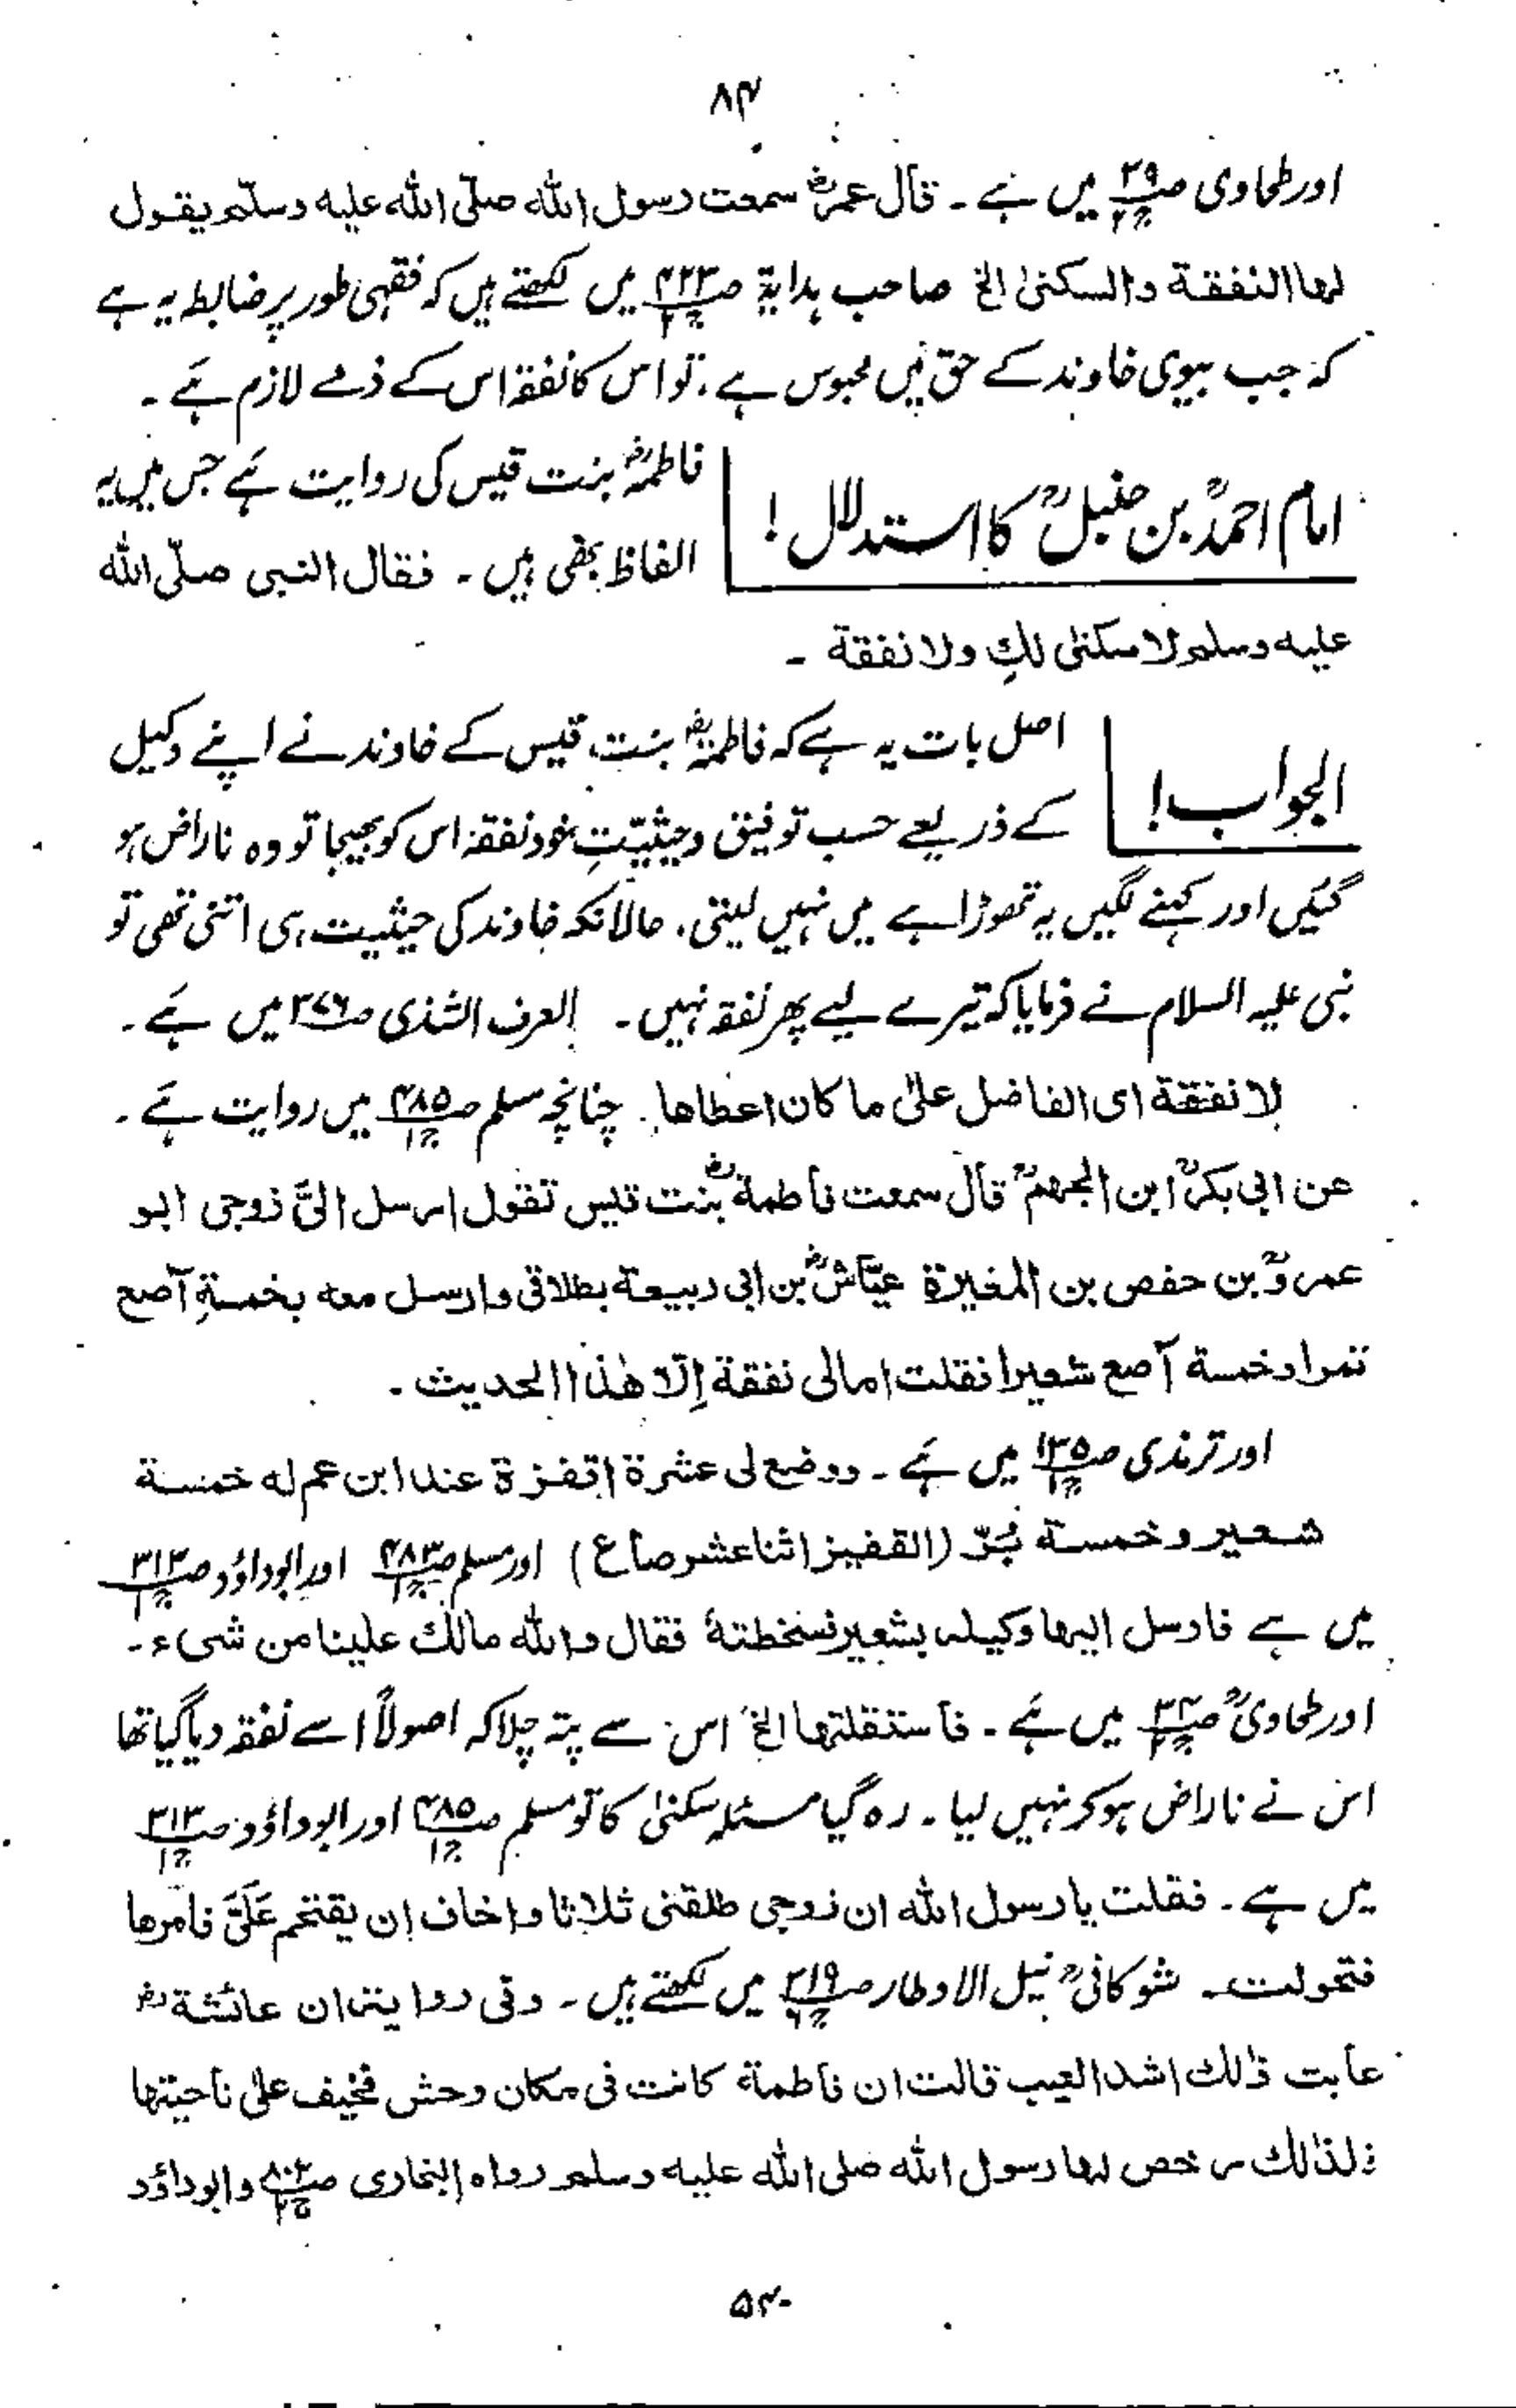 ۸۴
اور طحاوی ص۳۹ ج۲ میں ہے۔ قال عمرؓ سمعت رسول اللہ صلّی اللہ علیہ وسلّم یقول
لہا النفقة والسکنیٰ الخ صاحب ہدایة ص۴۲۳ ج۲ میں لکھتے ہیں کہ فقہی طور پر ضابطہ یہ ہے
کہ جب بیوی خاوند کے حق میں محبوس ہے، تو اس کا نفقہ اس کے ذمے لازم ہے۔
امام احمدؒ بن حنبلؒ کا استدلال!
فاطمہؓ بنت قیس کی روایت ہے جس میں یہ
الفاظ بھی ہیں۔ فقال النبی صلّی اللہ
علیہ وسلم لا سکنیٰ لكِ ولا نفقة ۔
الجواب!
اصل بات یہ ہے کہ فاطمہؓ بنت قیس کے خاوند نے اپنے وکیل
کے ذریعے حسب توفیق وحیثیّتِ خود نفقہ اس کو بھیجا تو وہ ناراض ہو
گئیں اور کہنے لگیں یہ تھوڑا ہے میں نہیں لیتی، حالانکہ خاوند کی حیثیت ہی اتنی تھی تو
نبی علیہ السلام نے فرمایا کہ تیرے لیے پھر نفقہ نہیں۔ العرف الشذی ص۳۷۶ میں ہے۔
لا نفقة ای الفاضل علیٰ ما کان اعطاھا۔ چنانچہ مسلم ص۴۸۵ ج۱ میں روایت ہے۔
عن ابی بکرؒ ابن الجہمؒ قال سمعت فاطمةؓ بنت قیس تقول ارسل الیَّ زوجی ابو
عمروؓ بن حفص بن المغیرة عیّاشؓ بن ابی ربیعة بطلاقی وارسل معہ بخمسةِ آصع
تمرا وخمسة آصع شعیرا فقلت امالی نفقة اِلّا ھٰذا الحدیث ۔
اور ترمذی ص۱۳۵ ج۱ میں ہے۔ ووضع لی عشرة اقفزة عند ابن عم لہ خمسة
شعیر وخمسة بُرّ (القفیز اثنا عشر صاع) اور مسلم ص۴۸۳ ج۱ اور ابوداؤد ص۳۱۲ ج۱
میں ہے فارسل الیہا وکیلہ بشعیر فسخطتہٗ فقال واللہ مالك علینا من شیء۔
اور طحاویؒ ج۲ میں ہے۔ فاستقلتہا الخ اس سے پتہ چلا کہ اصولاً اسے نفقہ دیا گیا تھا
اس نے ناراض ہو کر نہیں لیا۔ رہ گیا مسئلہ سکنیٰ کا تو مسلم ص۴۸۵ ج۱ اور ابوداؤد ص۳۱۳ ج۱
میں ہے۔ فقلت یا رسول اللہ ان زوجی طلقنی ثلاثا واخاف ان یقتحم عَلَیَّ فامرھا
فتحولت۔ شوکانیؒ نیل الاوطار ص۳۱۹ ج۶ میں لکھتے ہیں۔ وفی روایتہ ان عائشةؓ
عابت ذٰلك اشد العیب قالت ان فاطمة کانت فی مکان وحش فخیف علیٰ ناحیتہا
فلذالك رخص لہا رسول اللہ صلی اللہ علیہ وسلم رواہ البخاری ص۸۰۲ ج۲ وابوداؤد
۵۴۰